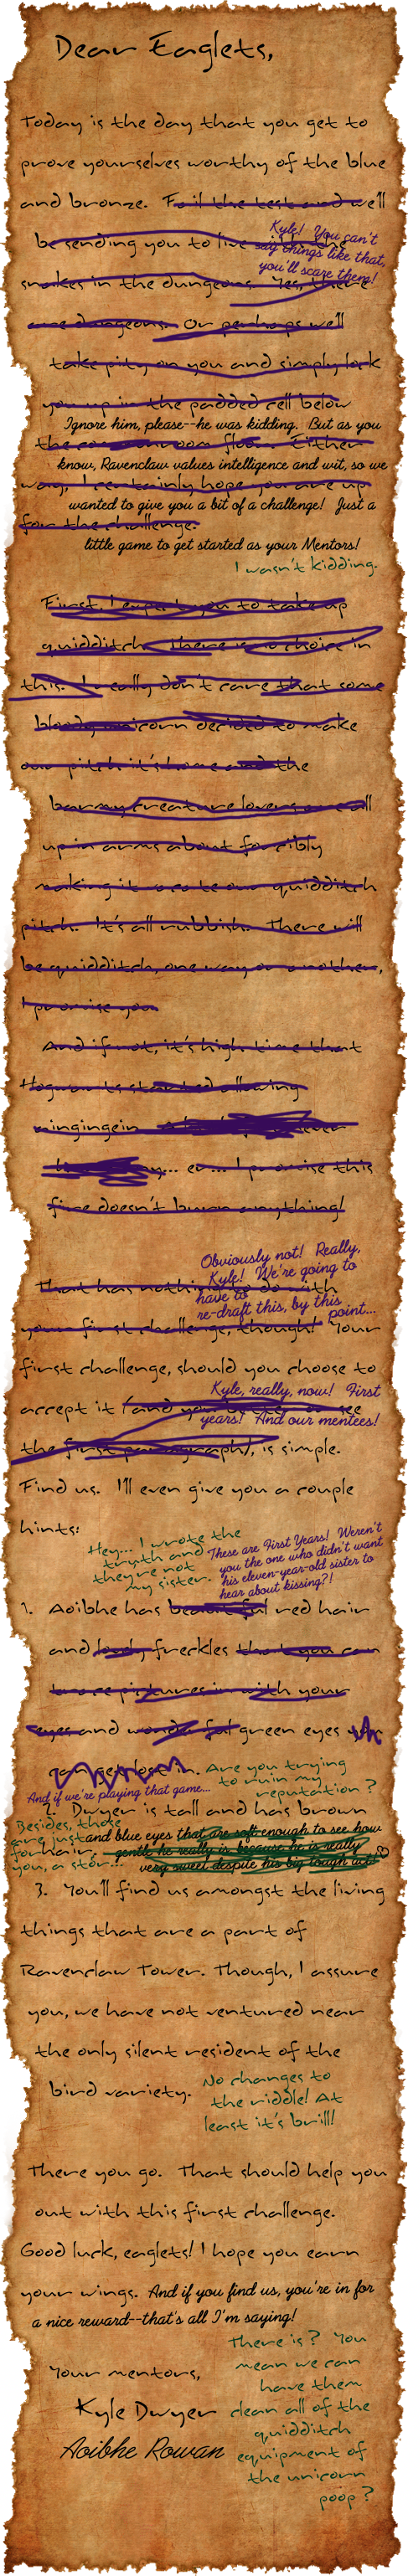 Dear Eaglets,
Today is the day that you get to
prove yourselves worthy of the blue
and bronze. Fail the test and we'll
be sending you to live with the
Kyle! You can't
say things like that,
you'll scare them!
snakes in the dungeons. Yes, there
are dungeons. Or perhaps we'll
take pity on you and simply lock
you up in the padded cell below
Ignore him, please--he was kidding. But as you
the common room floor. Either
know, Ravenclaw values intelligence and wit, so we
way, I certainly hope you are up
wanted to give you a bit of a challenge! Just a
for the challenge.
little game to get started as your Mentors!
I wasn't kidding.
First, I expect you to take up
quidditch. There is no choice in
this. I really don't care that some
bloody unicorn decided to make
our pitch it's home and the
barmy creature lovers are all
up in arms about forcibly
making it vacate our quidditch
pitch. It's all rubbish. There will
be quidditch, one way or another,
I promise you.
And if not, it's high time that
Hogwarts started allowing
ever
er... I promise this
fire doesn't burn anything!
Obviously not! Really,
Kyle! We're going to
have to
re-draft this, by this
point...
That has nothing to do with
your first challenge, though! Your
first challenge, should you choose to
Kyle, really, now! First
years! And our mentees!
accept it (and you better or see
the first paragraph), is simple.
Find us. I'll even give you a couple
hints:
Hey... I wrote the
truth and
they're not
my sister.
These are First Years! Weren't
you the one who didn't want
his eleven-year-old sister to
hear about kissing?!
1. Aoibhe has beautiful red hair
and lovely freckles that you can
trace pictures in with your
eyes and wonderful green eyes you
can get lost in.
Are you trying
to ruin my
reputation?
And if we're playing that game...
2. Dwyer is tall and has brown
Besides, those
are just
for
you, a stór...
hair.
and blue eyes that are soft enough to see how
gentle he really is because he is really
very sweet despite his big tough act!
3. You'll find us amongst the living
things that are a part of
Ravenclaw Tower. Though, I assure
you, we have not ventured near
the only silent resident of the
bird variety.
No changes to
the riddle! At
least it's brill!
There you go. That should help you
out with this first challenge.
Good luck, eaglets! I hope you earn
your wings. And if you find us, you're in for
a nice reward--that's all I'm saying!
There is? You
mean we can
have them
clean all of the
quidditch
equipment of
the unicorn
poop?
Your mentors,
Kyle Dwyer
Aoibhe Rowan